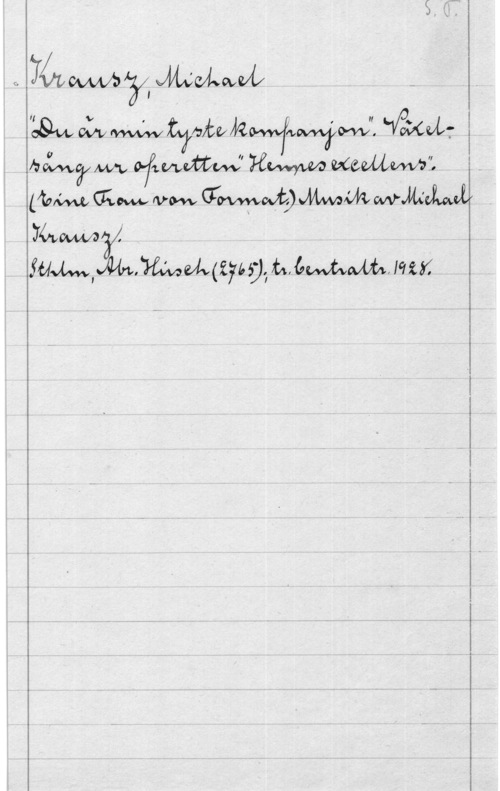 S. T.
Krausz, Michael
"Du är min tyste kompanjon". Växel-
sång ur operetten "Hennes excellens".
(Eine Frau von Format.) Musik av Michael
Krausz.
Sthlm, Abr. Hirsch (2765); tr. Centraltr. 1928.